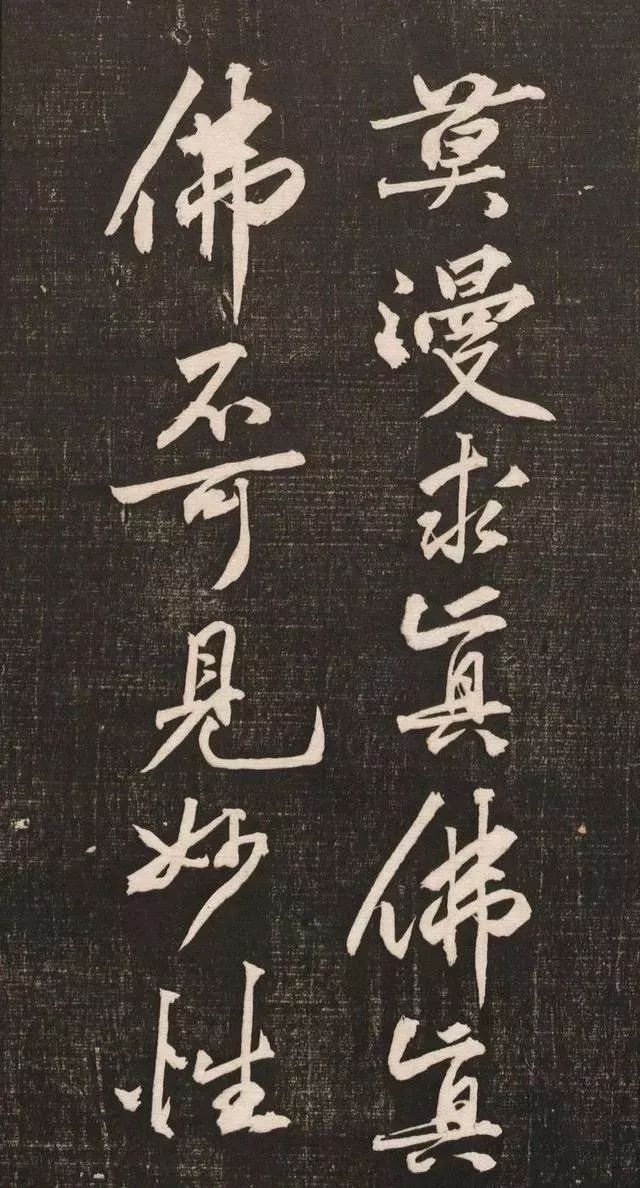 莫漫求真佛真
佛不可見妙性